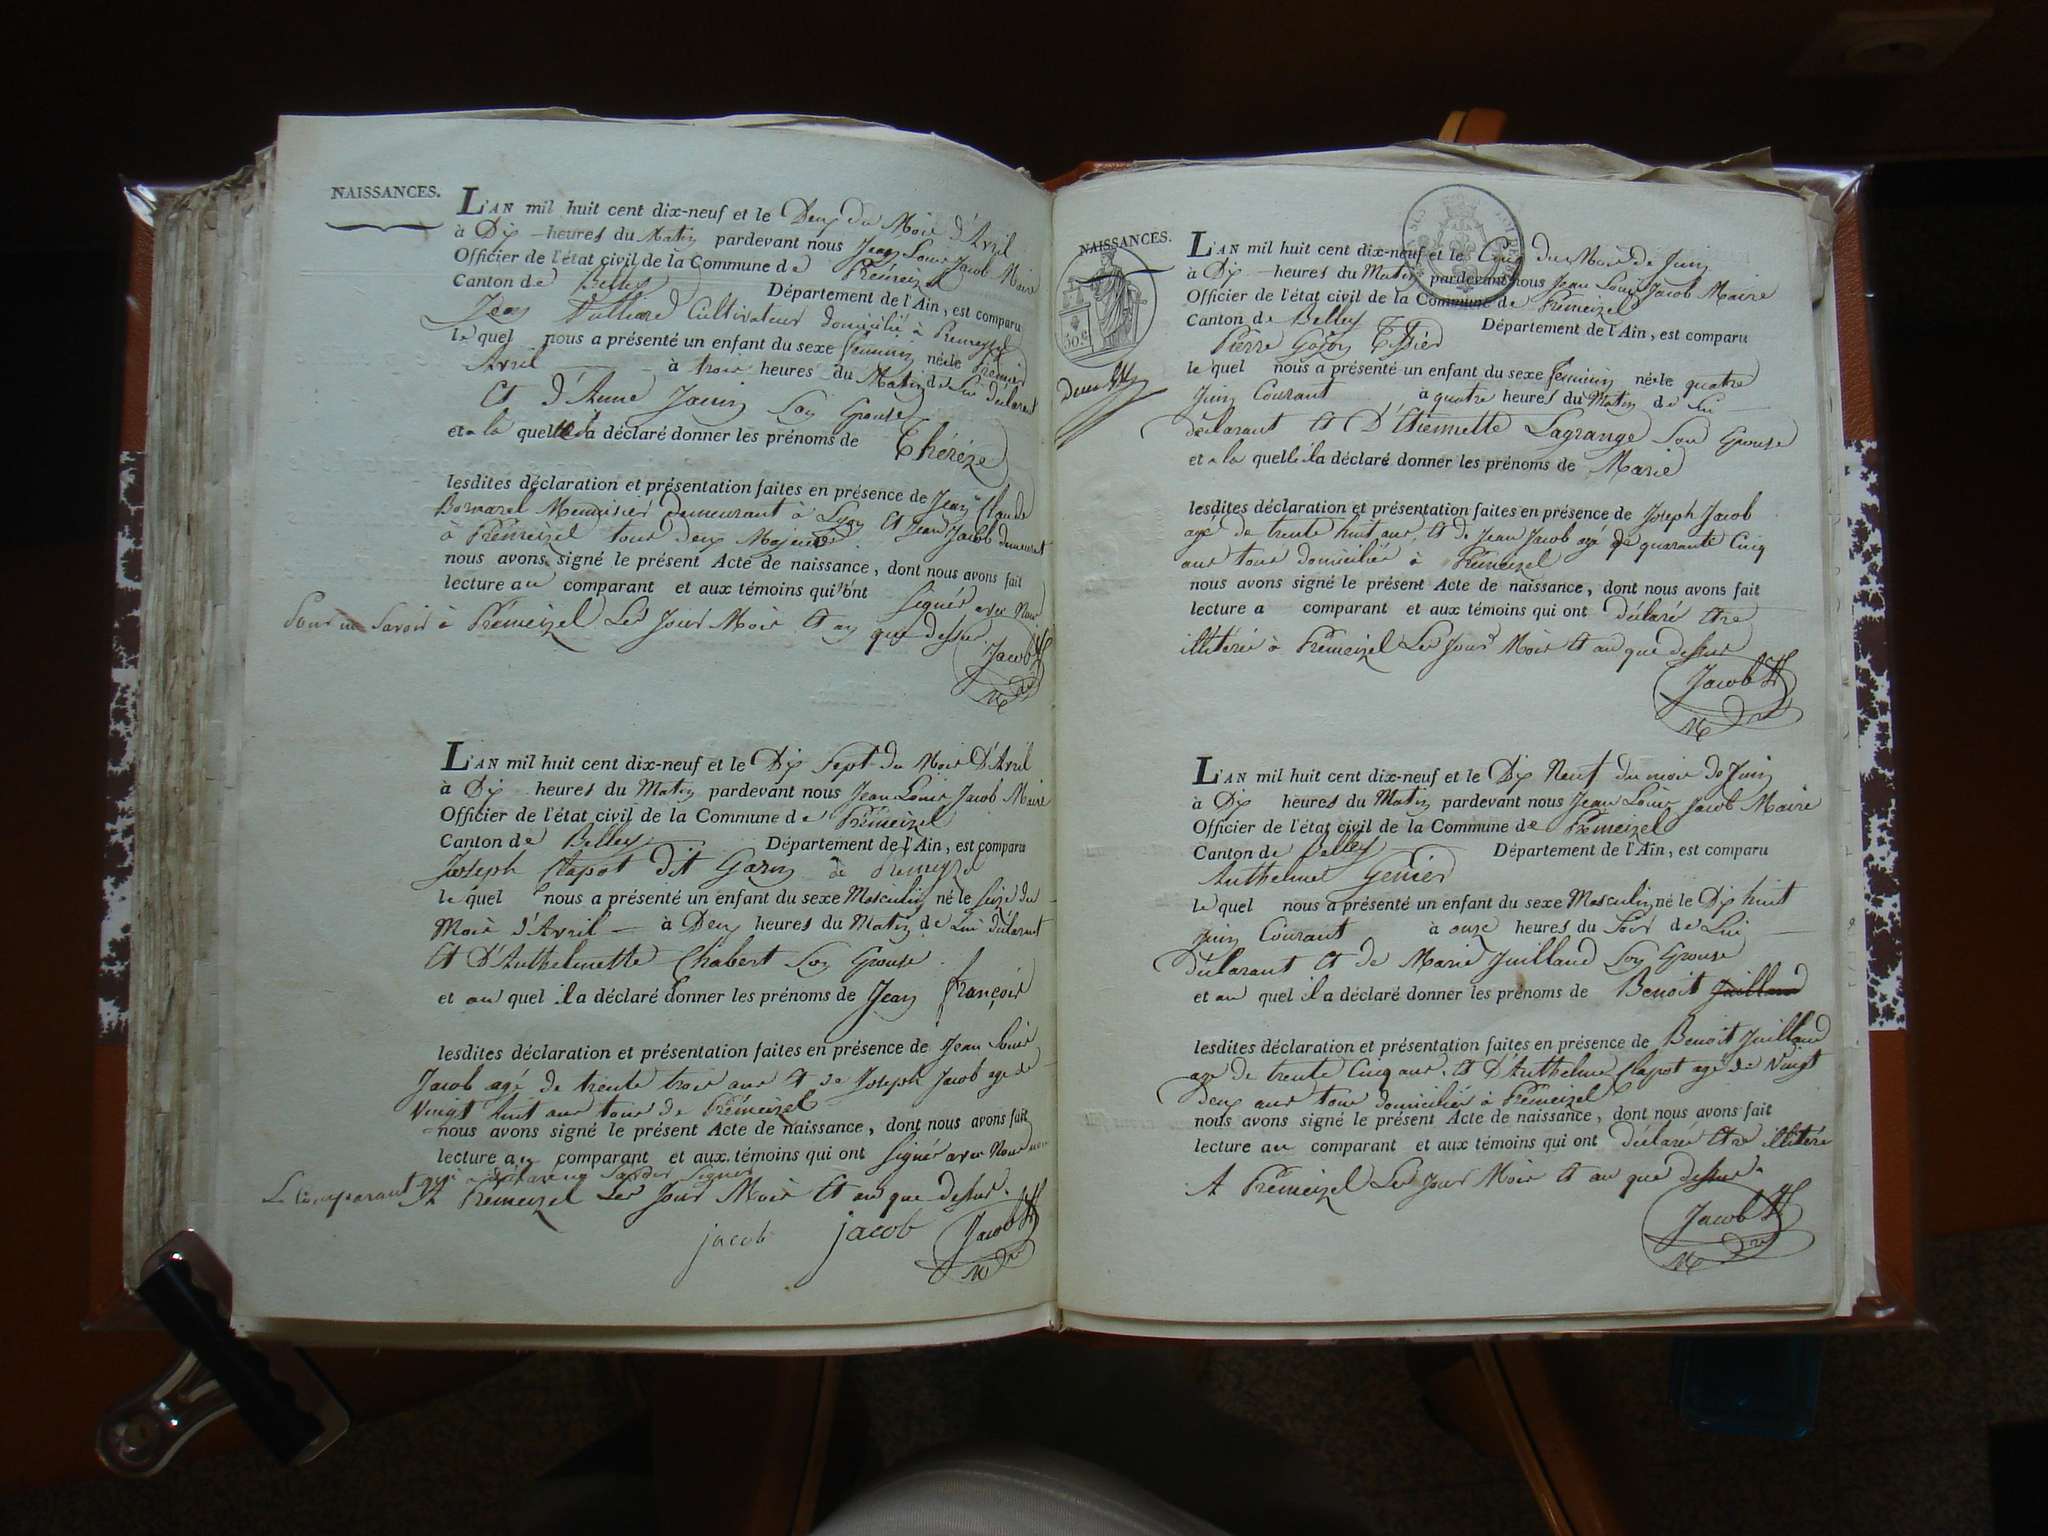 NAISSANCES.
L'AN mil huit cent dix-neuf et le Deux du Mois d'Avril
à Dix heures du Matin pardevant nous Jean Louis Jacob Maire
Officier de l'état civil de la Commune de Prémeizel
Canton de Belley Département de l'Ain, est comparu
Jean Vulliard Cultivateur domicilié à Premeyzel
le quel nous a présenté un enfant du sexe feminin né le Premier
Avril à trois heures du Matin de Lui déclarant
Et d'Anne Janin Son Epouse
et a la quelle il a déclaré donner les prénoms de Thérèze
lesdites déclaration et présentation faites en présence de Jean Claude
Bornarel Menuisier demeurant à Lyon Et Jean Jacob demeurant
à Prémeizel tous deux Majeurs
nous avons signé le présent Acte de naissance, dont nous avons fait
lecture au comparant et aux témoins qui n'ont Signés avec Nous
Pour ne Savoir à Prémeizel Les Jour Mois Et an que dessus
Jacob
L'AN mil huit cent dix-neuf et le Dix Sept du Mois D'Avril
à Dix heures du Matin pardevant nous Jean Louis Jacob Maire
Officier de l'état civil de la Commune de Prémeizel
Canton de Belley Département de l'Ain, est comparu
Joseph Clapot dit Garin de Prémeyzel
le quel nous a présenté un enfant du sexe Masculin né le Seize du
Mois d'Avril à Deux heures du Matin de Lui déclarant
Et D'Anthelmette Chabert Son Epouse
et au quel il a déclaré donner les prénoms de Jean françois
lesdites déclaration et présentation faites en présence de Jean Louis
Jacob agé de trente trois ans Et de Joseph Jacob agé de
Vingt huit ans tous de Prémeizel
nous avons signé le présent Acte de naissance, dont nous avons fait
lecture au comparant et aux témoins qui ont Signés avec Nous non
Le Comparant qui a déclaré ne Savoir Signer
A Prémeizel Les Jour Mois Et an que dessus.
jacob jacob Jacob
NAISSANCES.
30 c
L'AN mil huit cent dix-neuf et le Cinq du Mois de Juin
à Dix heures du Matin pardevant nous Jean Louis Jacob Maire
Officier de l'état civil de la Commune de Prémeizel
Canton de Belley Département de l'Ain, est comparu
Pierre Goion Tissier
le quel nous a présenté un enfant du sexe feminin né le quatre
Juin Courant à quatre heures du Matin de Lui
déclarant Et D'Etiennette Lagrange Son Epouse
et a la quelle il a déclaré donner les prénoms de Marie
lesdites déclaration et présentation faites en présence de Joseph Jacob
agé de trente huit ans, Et de Jean Jacob agé de quarante Cinq
ans tous domiciliés à Prémeizel
nous avons signé le présent Acte de naissance, dont nous avons fait
lecture a comparant et aux témoins qui ont déclaré Etre
illiterés à Prémeizel Les Jour Mois Et an que dessus
Jacob
L'AN mil huit cent dix-neuf et le Dix Neuf du mois de Juin
à Dix heures du Matin pardevant nous Jean Louis Jacob Maire
Officier de l'état civil de la Commune de Prémeizel
Canton de Belley Département de l'Ain, est comparu
Anthelme Genier
le quel nous a présenté un enfant du sexe Masculin né le Dix huit
Juin Courant à onze heures du Soir de Lui
déclarant Et de Marie Juilland Son Epouse
et au quel il a déclaré donner les prénoms de Benoit Juilland
lesdites déclaration et présentation faites en présence de Benoit Juilland
agé de trente Cinq ans, Et D'Anthelme Clapot agé de Vingt
Deux ans tous domiciliés à Prémeizel
nous avons signé le présent Acte de naissance, dont nous avons fait
lecture au comparant et aux témoins qui ont déclarés Etre illiterés
A Prémeizel Les Jour Mois Et an que dessus.
Jacob